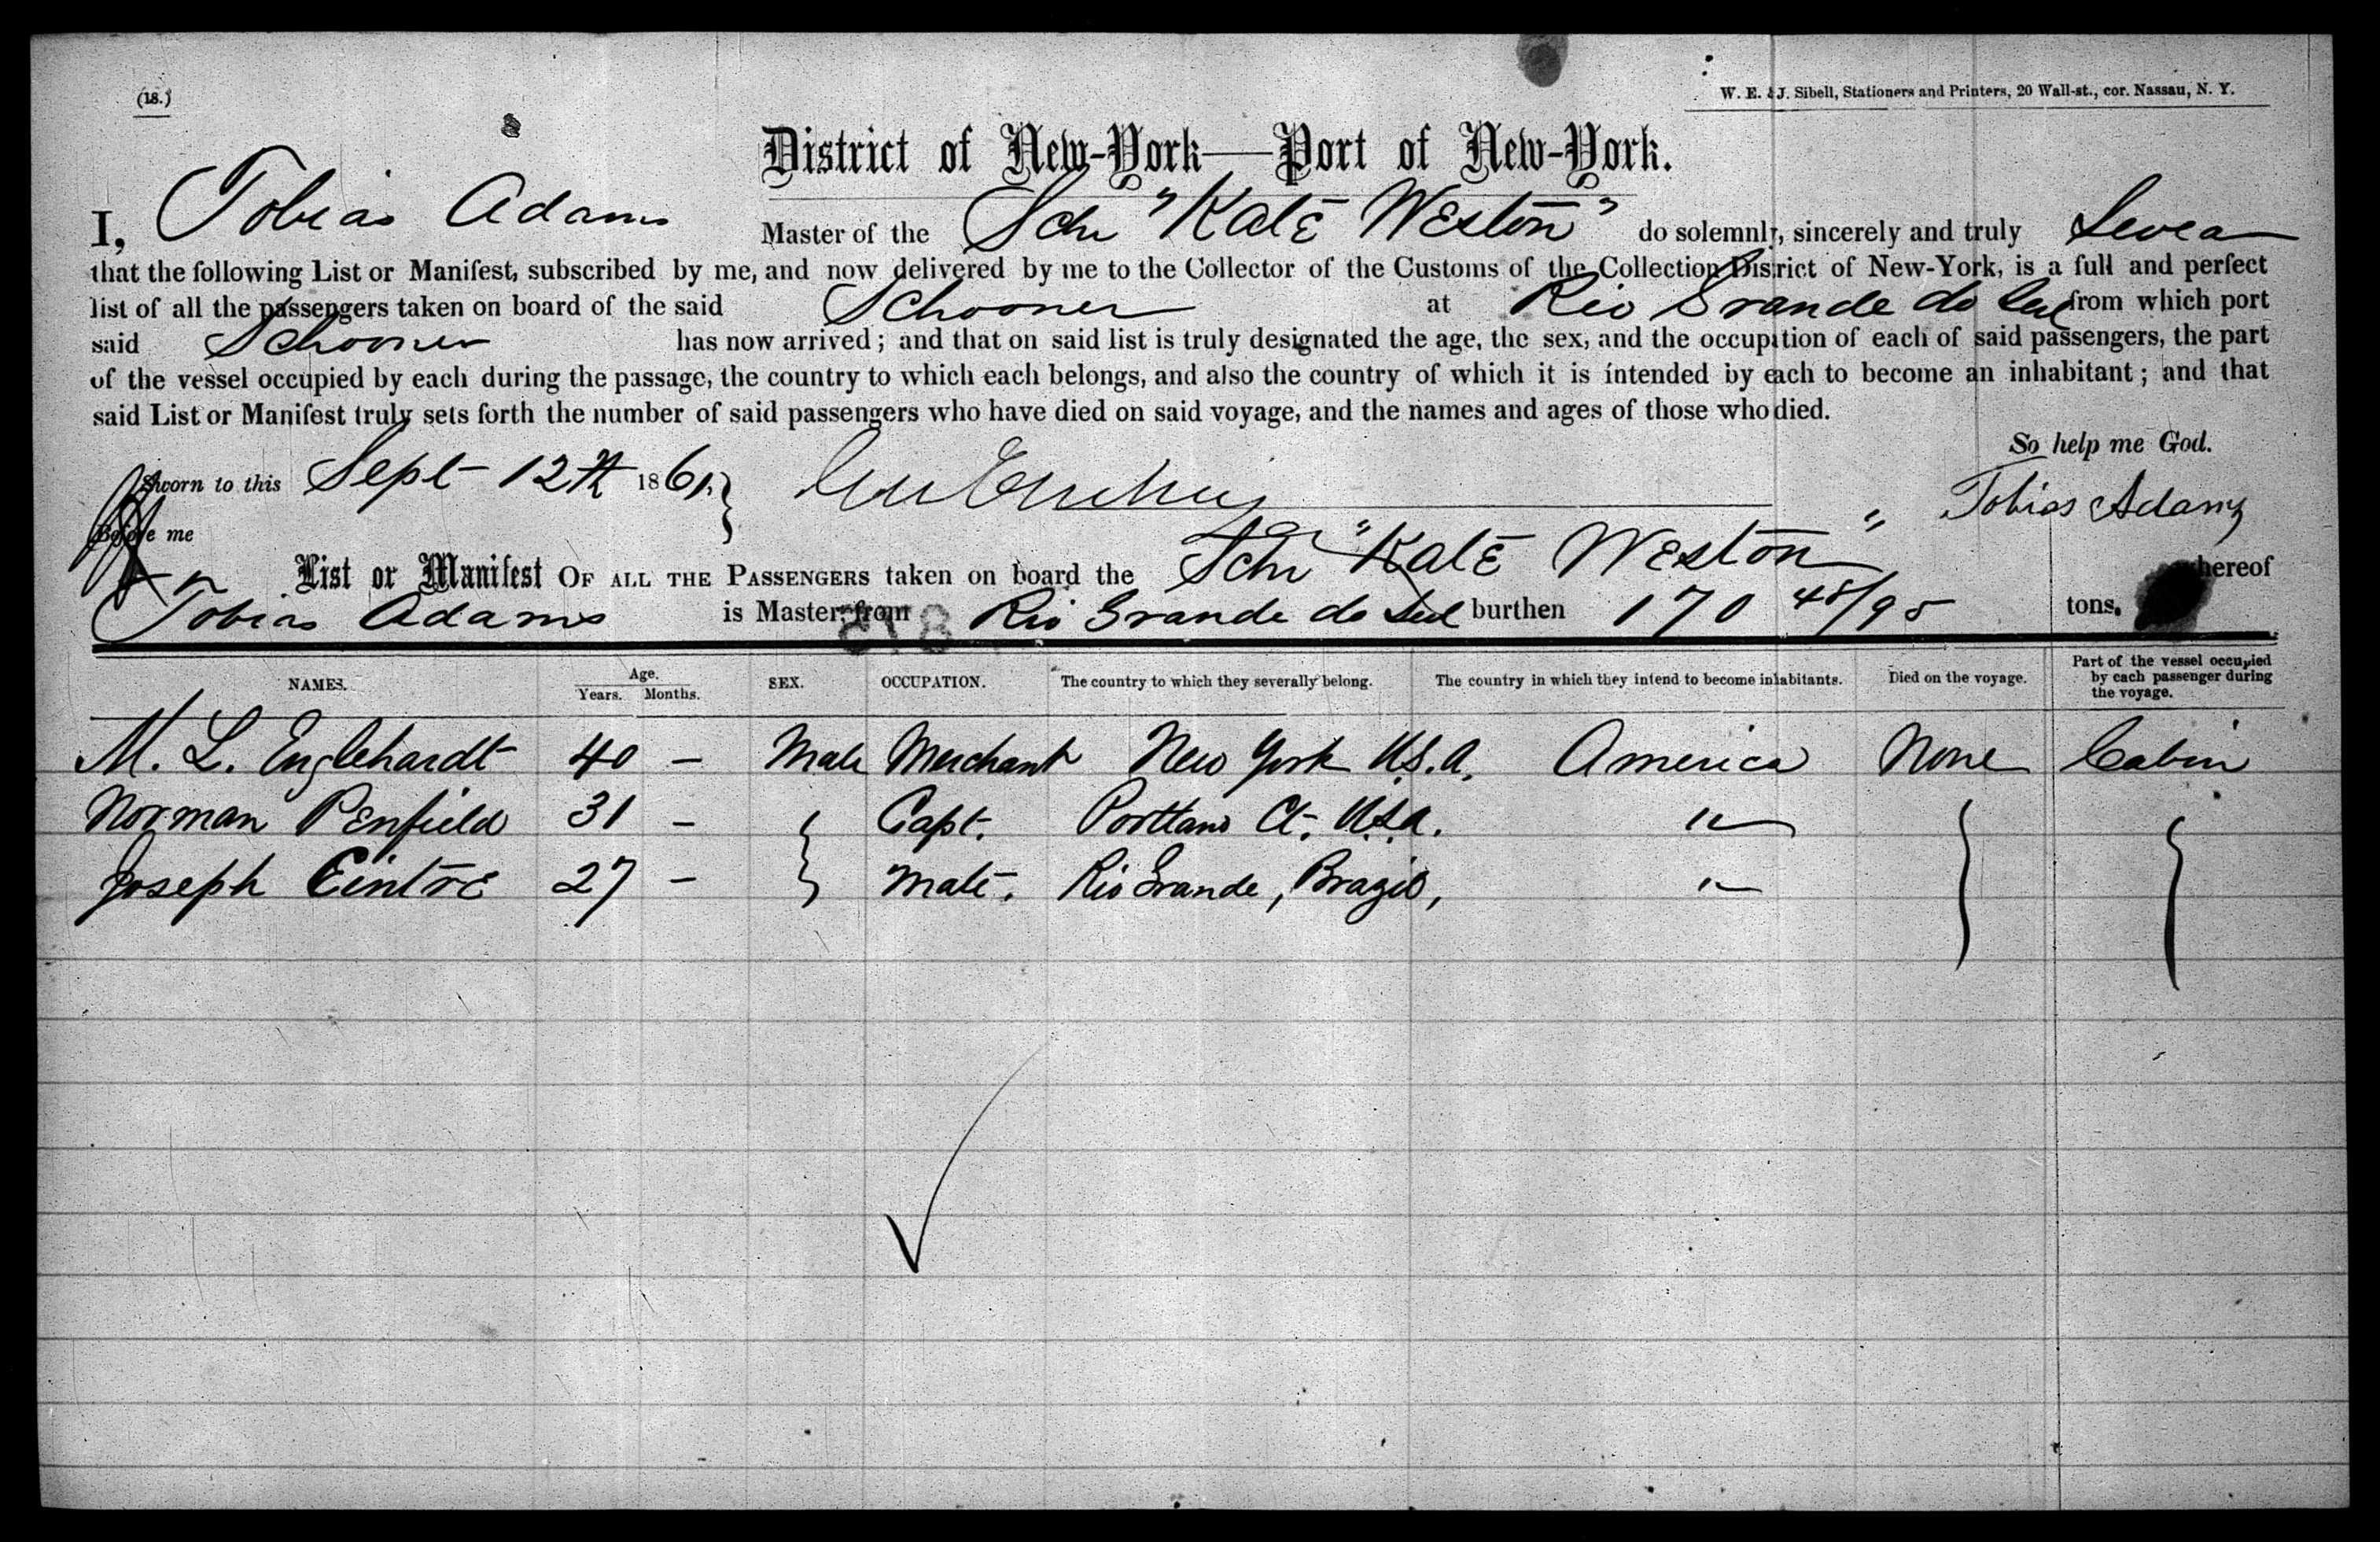 (18.)
W. E. & J. Sibell, Stationers and Printers, 20 Wall-st., cor. Nassau, N. Y.
District of New-York—Port of New-York.
I, Tobias Adams Master of the Schr "Kate Weston" do solemnly, sincerely and truly Swear
that the following List or Manifest, subscribed by me, and now delivered by me to the Collector of the Customs of the Collection District of New-York, is a full and perfect
list of all the passengers taken on board of the said Schooner at Rio Grande do Sul from which port
said Schooner has now arrived; and that on said list is truly designated the age, the sex, and the occupation of each of said passengers, the part
of the vessel occupied by each during the passage, the country to which each belongs, and also the country of which it is intended by each to become an inhabitant; and that
said List or Manifest truly sets forth the number of said passengers who have died on said voyage, and the names and ages of those who died.
So help me God.
Sworn to this Sept 12th 1861.
Tobias Adams
Before me
List or Manifest OF ALL THE PASSENGERS taken on board the Schr "Kate Weston" whereof
Tobias Adams is Master, from Rio Grande do Sul burthen 170 48/95 tons.
818
NAMES. Age. Years. Months. SEX. OCCUPATION. The country to which they severally belong. The country in which they intend to become inhabitants. Died on the voyage. Part of the vessel occupied by each passenger during the voyage.
M. L. Englehardt 40 – Male Merchant New York U.S.A. America None Cabin
Norman Penfield 31 – Capt. Portland Ct. U.S.A. "
Joseph Eintre 27 – Mate. Rio Grande, Brazil, "